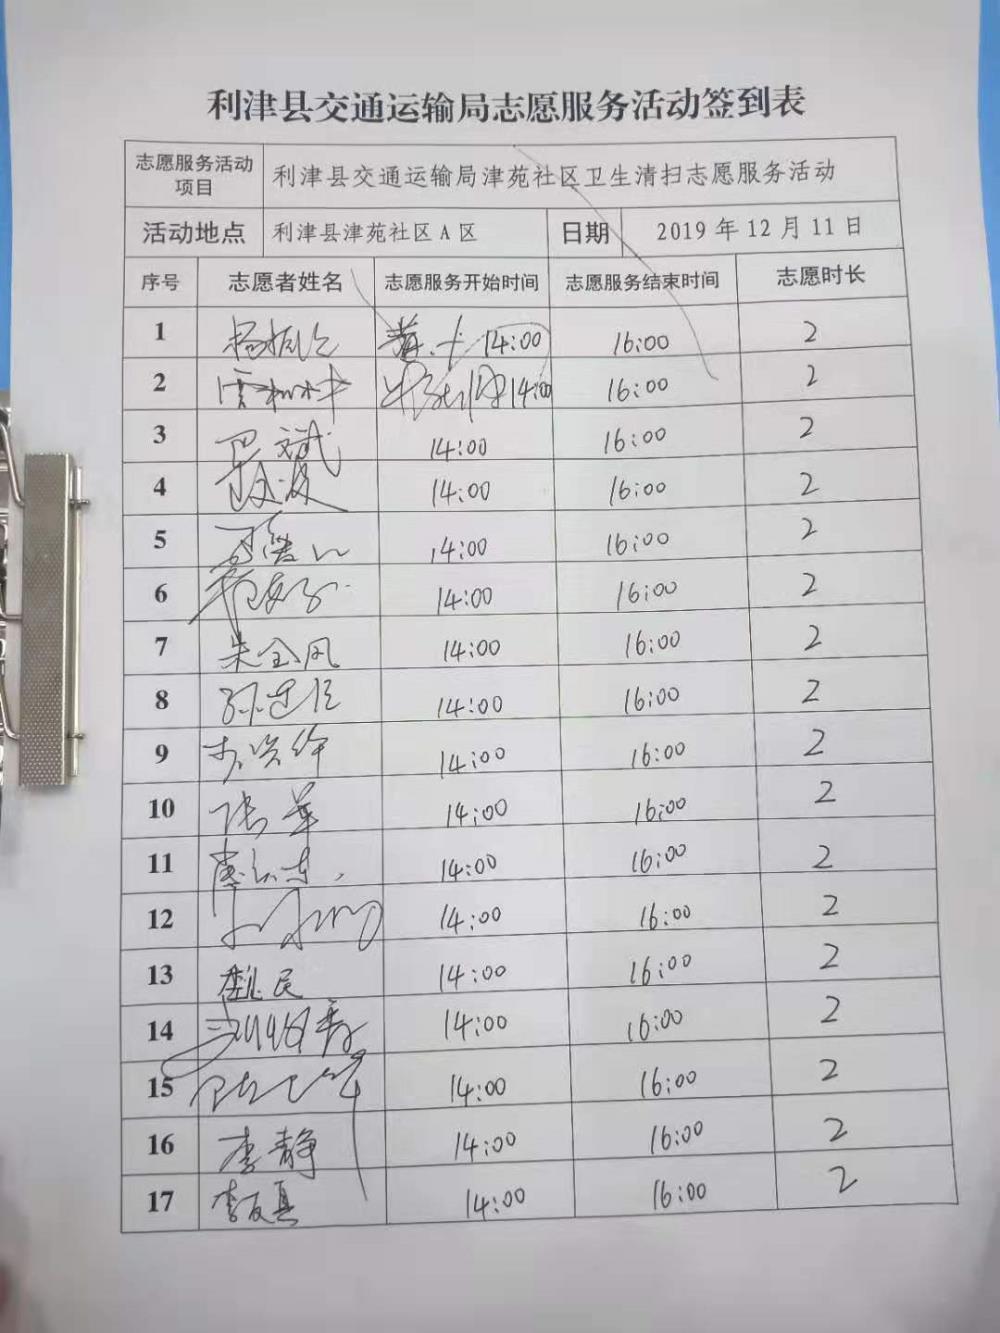 利津县交通运输局志愿服务活动签到表
志愿服务活动项目 利津县交通运输局津苑社区卫生清扫志愿服务活动
活动地点 利津县津苑社区A区 日期 2019年12月11日
序号 志愿者姓名 志愿服务开始时间 志愿服务结束时间 志愿时长
1 14:00 16:00 2
2 14:00 16:00 2
3 14:00 16:00 2
4 14:00 16:00 2
5 14:00 16:00 2
6 14:00 16:00 2
7 朱全风 14:00 16:00 2
8 14:00 16:00 2
9 14:00 16:00 2
10 张军 14:00 16:00 2
11 14:00 16:00 2
12 14:00 16:00 2
13 14:00 16:00 2
14 14:00 16:00 2
15 14:00 16:00 2
16 李静 14:00 16:00 2
17 14:00 16:00 2